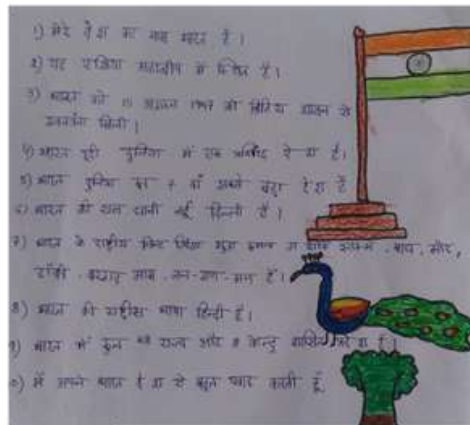 1) मेरे देश का नाम भारत है।
2) यह एशिया महाद्वीप में स्थित है।
3) भारत को 15 अगस्त 1947 को ब्रिटिश शासन से
स्वतंत्रता मिली।
4) भारत पूरी दुनिया में एक प्रसिद्ध देश है।
5) भारत दुनिया का 7 वाँ सबसे बड़ा देश है
6) भारत की राजधानी नई दिल्ली है।
7) भारत के राष्ट्रीय चिन्ह कमल बाघ, मोर,
हॉकी, बरगद, आम, जन-गण-मन हैं।
8) भारत की राष्ट्रीय भाषा हिन्दी है।
9) भारत में कुल राज्य और 8 केन्द्र शासित प्रदेश हैं।
10) मैं अपने भारत देश से बहुत प्यार करती हूँ